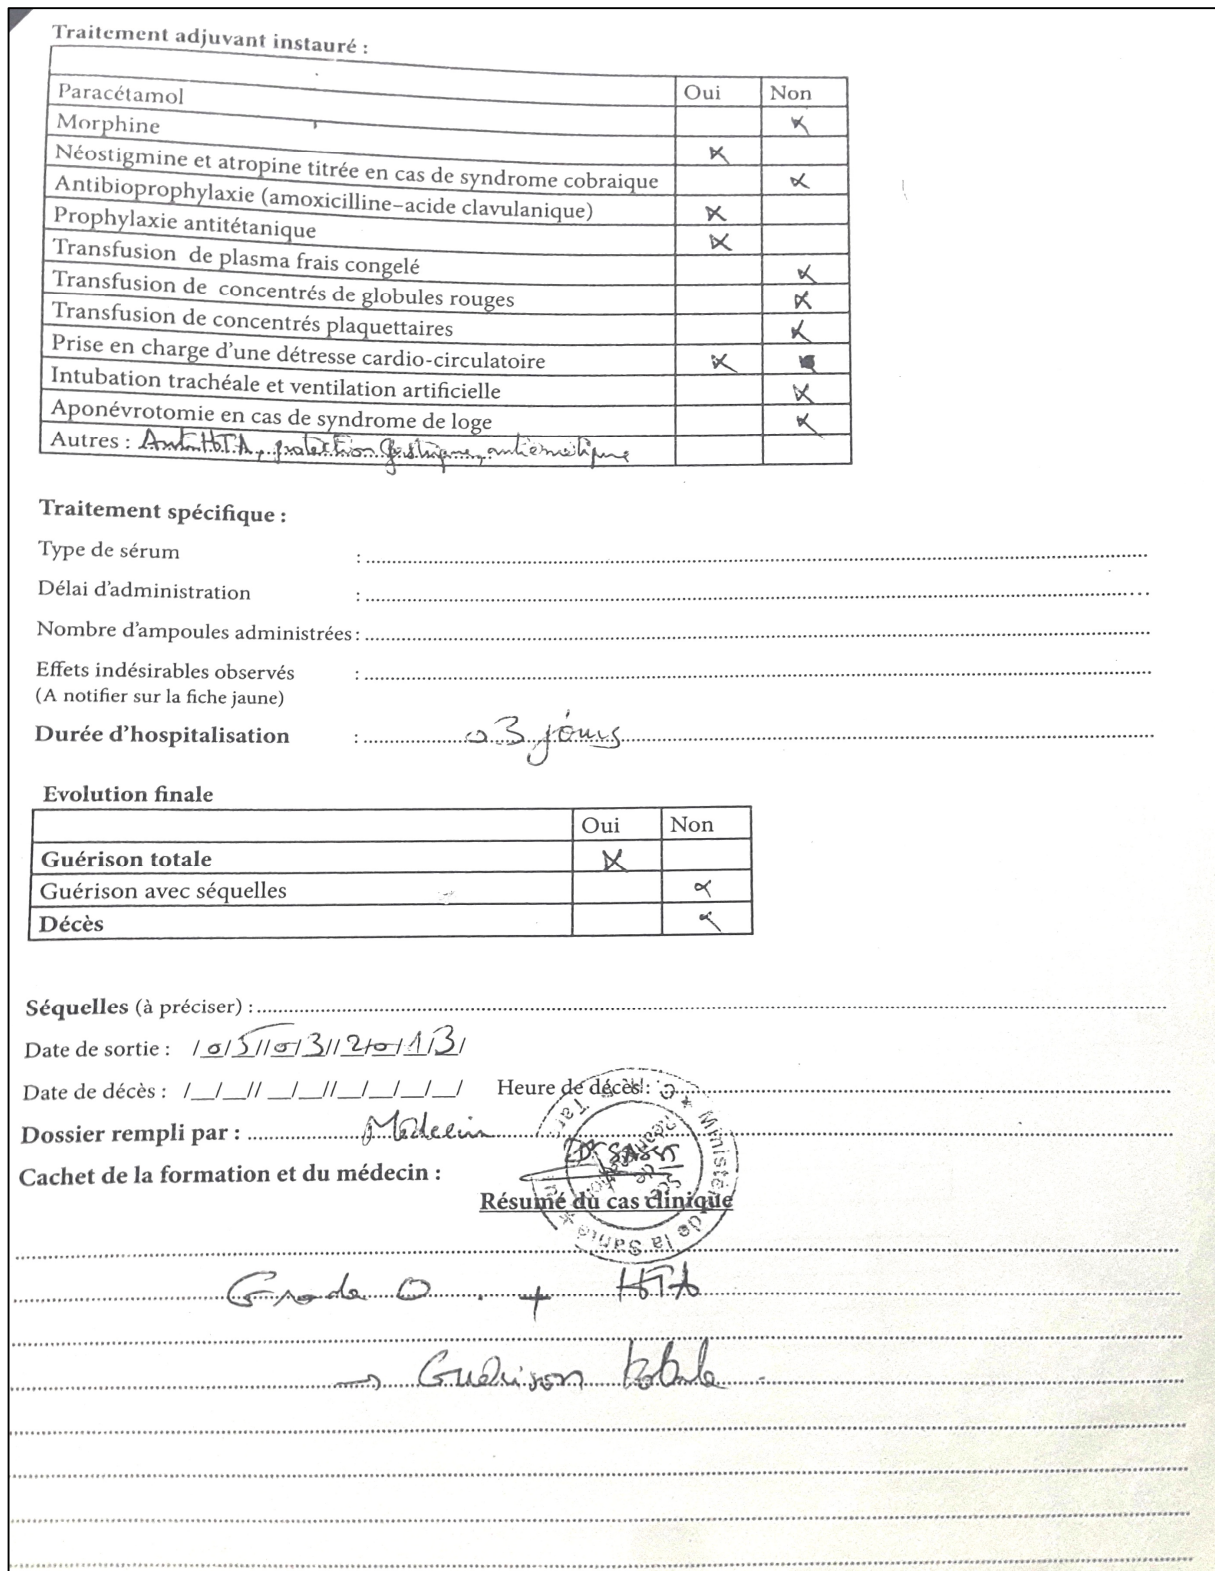 Traitement adjuvant instauré :
Oui Non
Paracétamol
Morphine
Néostigmine et atropine titrée en cas de syndrome cobraique
Antibioprophylaxie (amoxicilline–acide clavulanique)
Prophylaxie antitétanique
Transfusion de plasma frais congelé
Transfusion de concentrés de globules rouges
Transfusion de concentrés plaquettaires
Prise en charge d'une détresse cardio-circulatoire
Intubation trachéale et ventilation artificielle
Aponévrotomie en cas de syndrome de loge
Autres : Anti HTA, protection gastrique, antiémétique
Traitement spécifique :
Type de sérum :
Délai d'administration :
Nombre d'ampoules administrées :
Effets indésirables observés :
(A notifier sur la fiche jaune)
Durée d'hospitalisation : 03 jours
Evolution finale
Oui Non
Guérison totale
Guérison avec séquelles
Décès
Séquelles (à préciser) :
Date de sortie : /0/5//0/3//2/0/1/3/
Date de décès : /__/__//__/__//__/__/__/__/ Heure de décès :
Dossier rempli par : Médecin
Cachet de la formation et du médecin :
Ministère de la Santé
Résumé du cas clinique
Grade 0 + HTA
→ Guérison totale